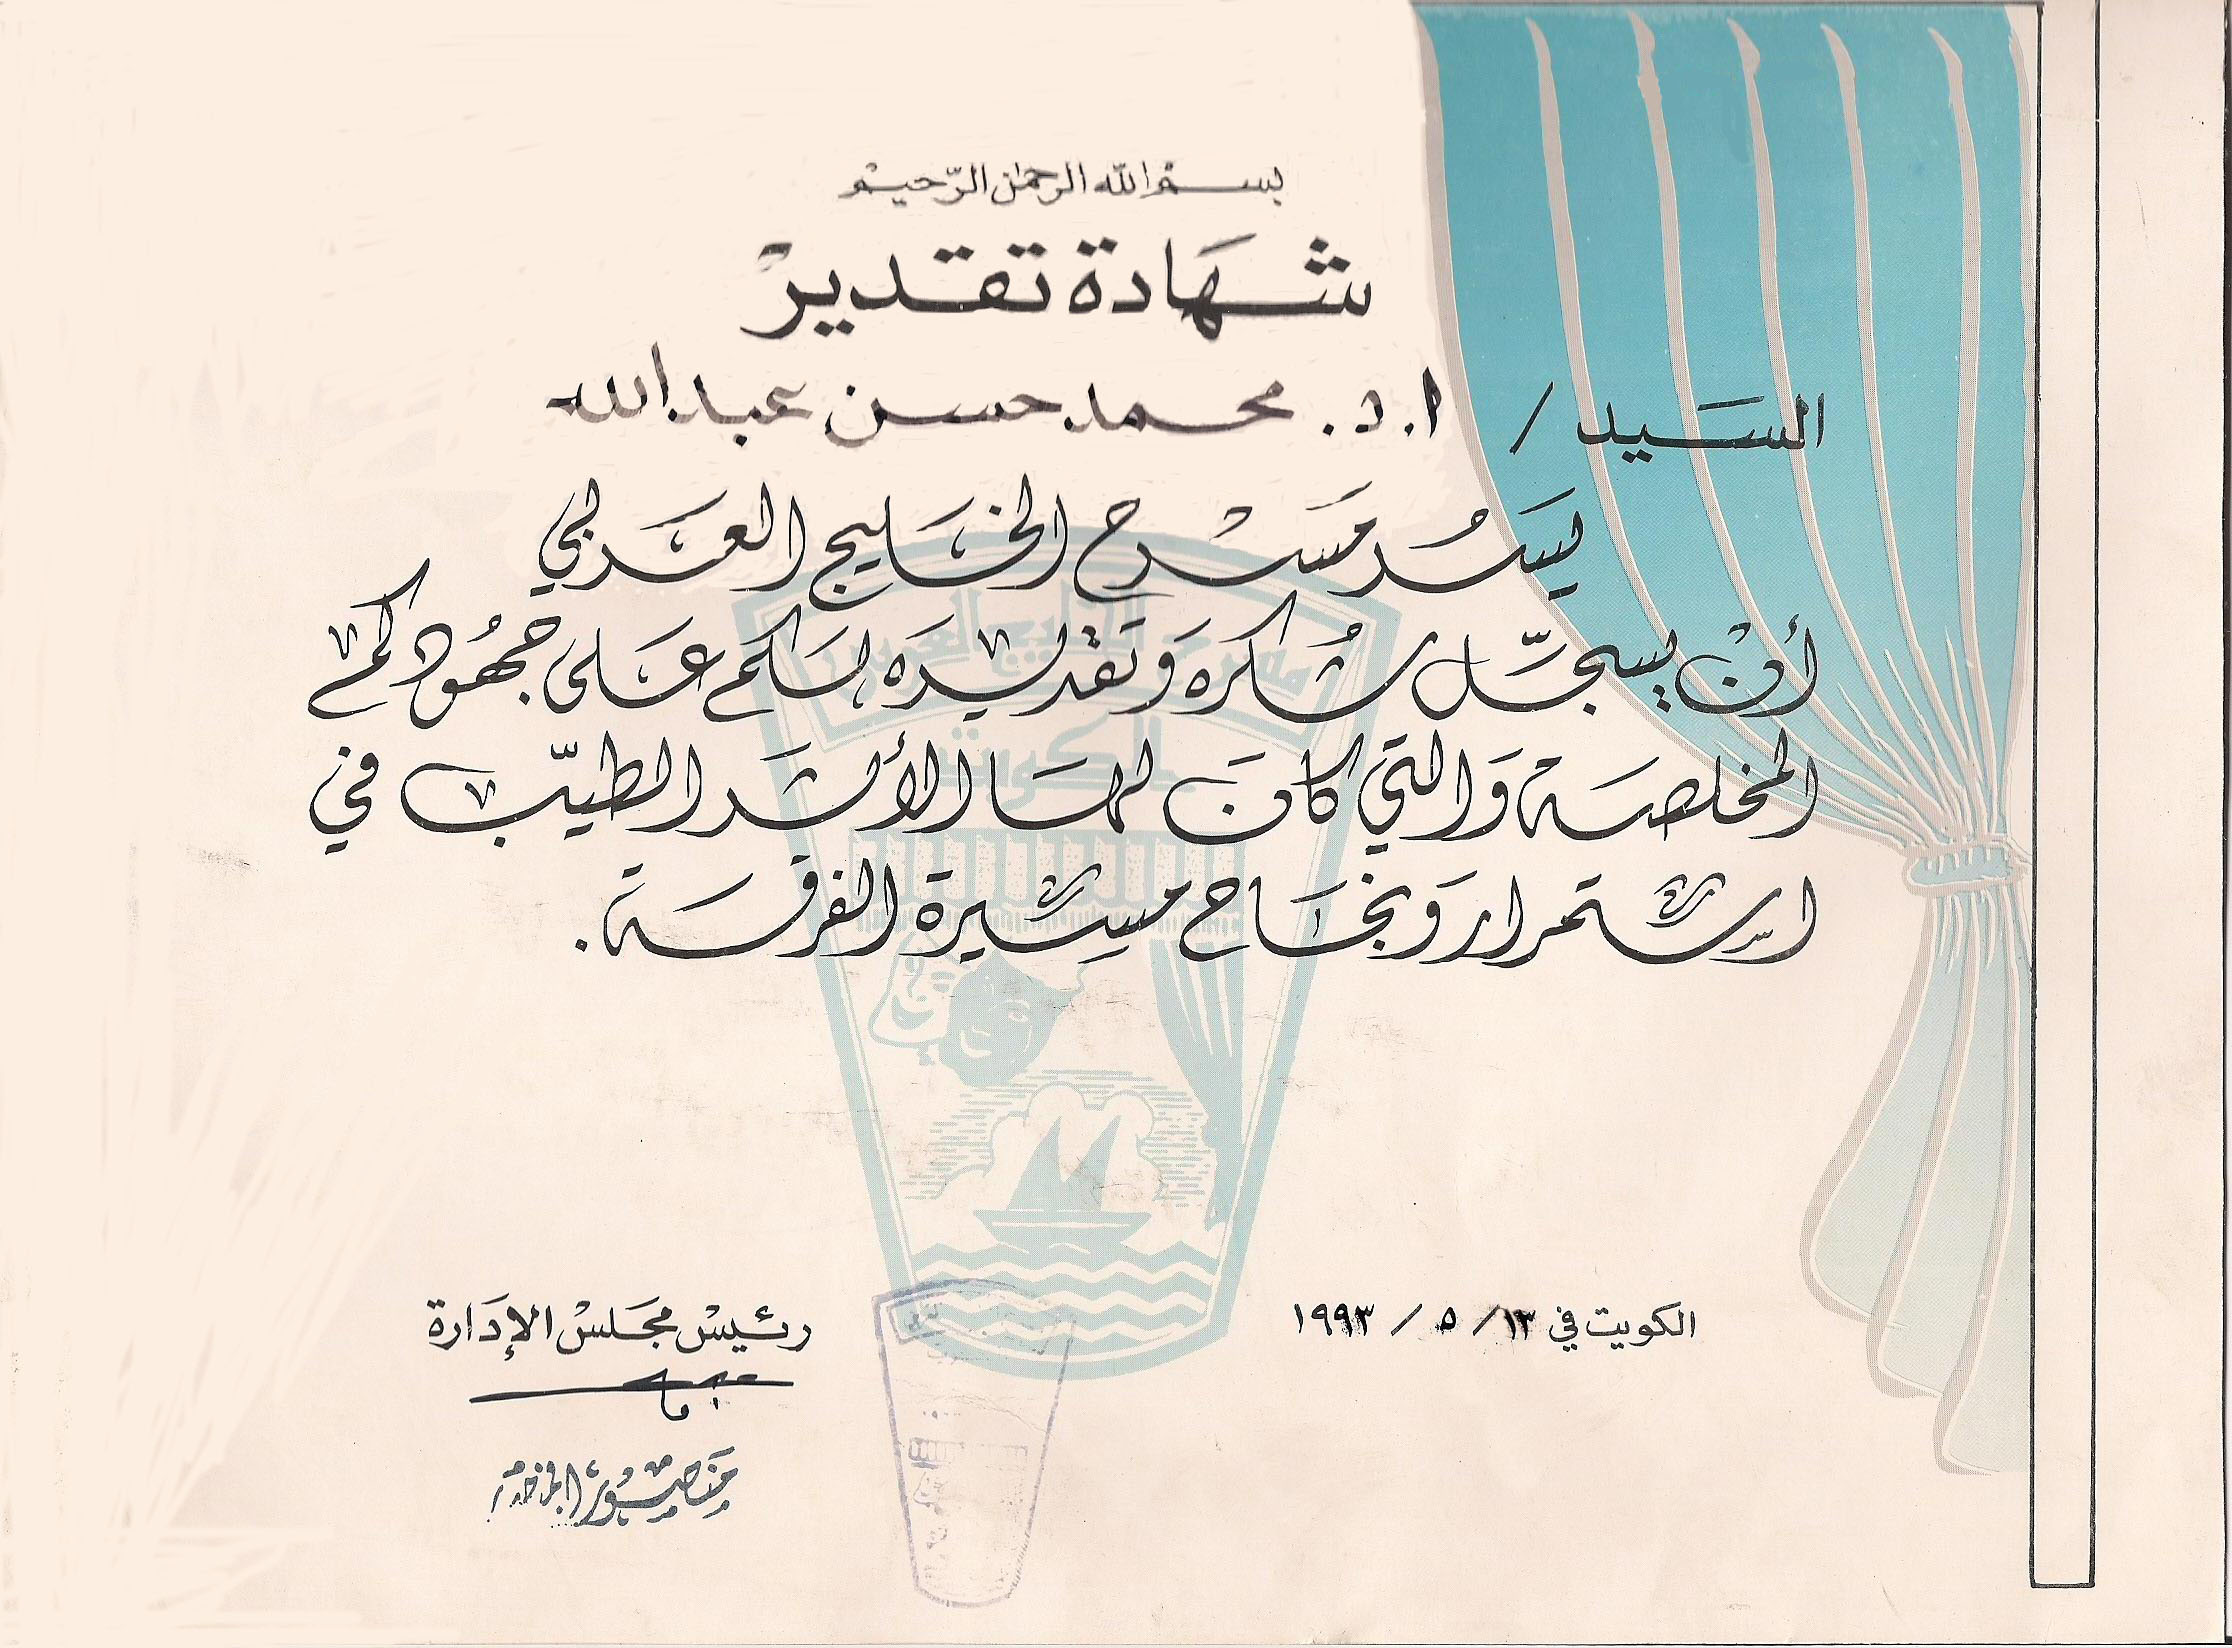 بسم الله الرحمن الرحيم
شهادة تقدير
السيد / ا.د. محمد حسن عبدالله
يسر مسرح الخليج العربي
أن يسجّل شكره وتقديره لكم على جهودكم
المخلصة والتي كان لها الأثر الطيّب في
استمرار ونجاح مسيرة الفرقة.
مسرح الخليج العربي
الكويت
الكويت في ١٣ / ٥ / ١٩٩٣
رئيس مجلس الإدارة
منصور